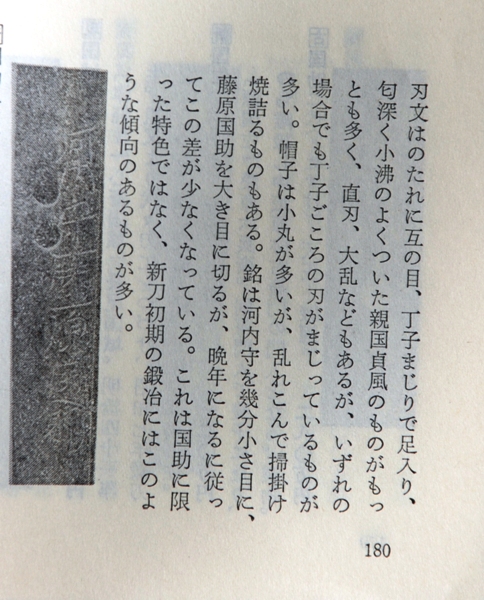 刃文はのたれに互の目、丁子まじりで足入り、
匂深く小沸のよくついた親国貞風のものがもっ
とも多く、直刃、大乱などもあるが、いずれの
場合でも丁子ごころの刃がまじっているものが
多い。帽子は小丸が多いが、乱れこんで掃掛け
焼詰るものもある。銘は河内守を幾分小さ目に、
藤原国助を大き目に切るが、晩年になるに従っ
てこの差が少なくなっている。これは国助に限
った特色ではなく、新刀初期の鍛冶にはこのよ
うな傾向のあるものが多い。
180